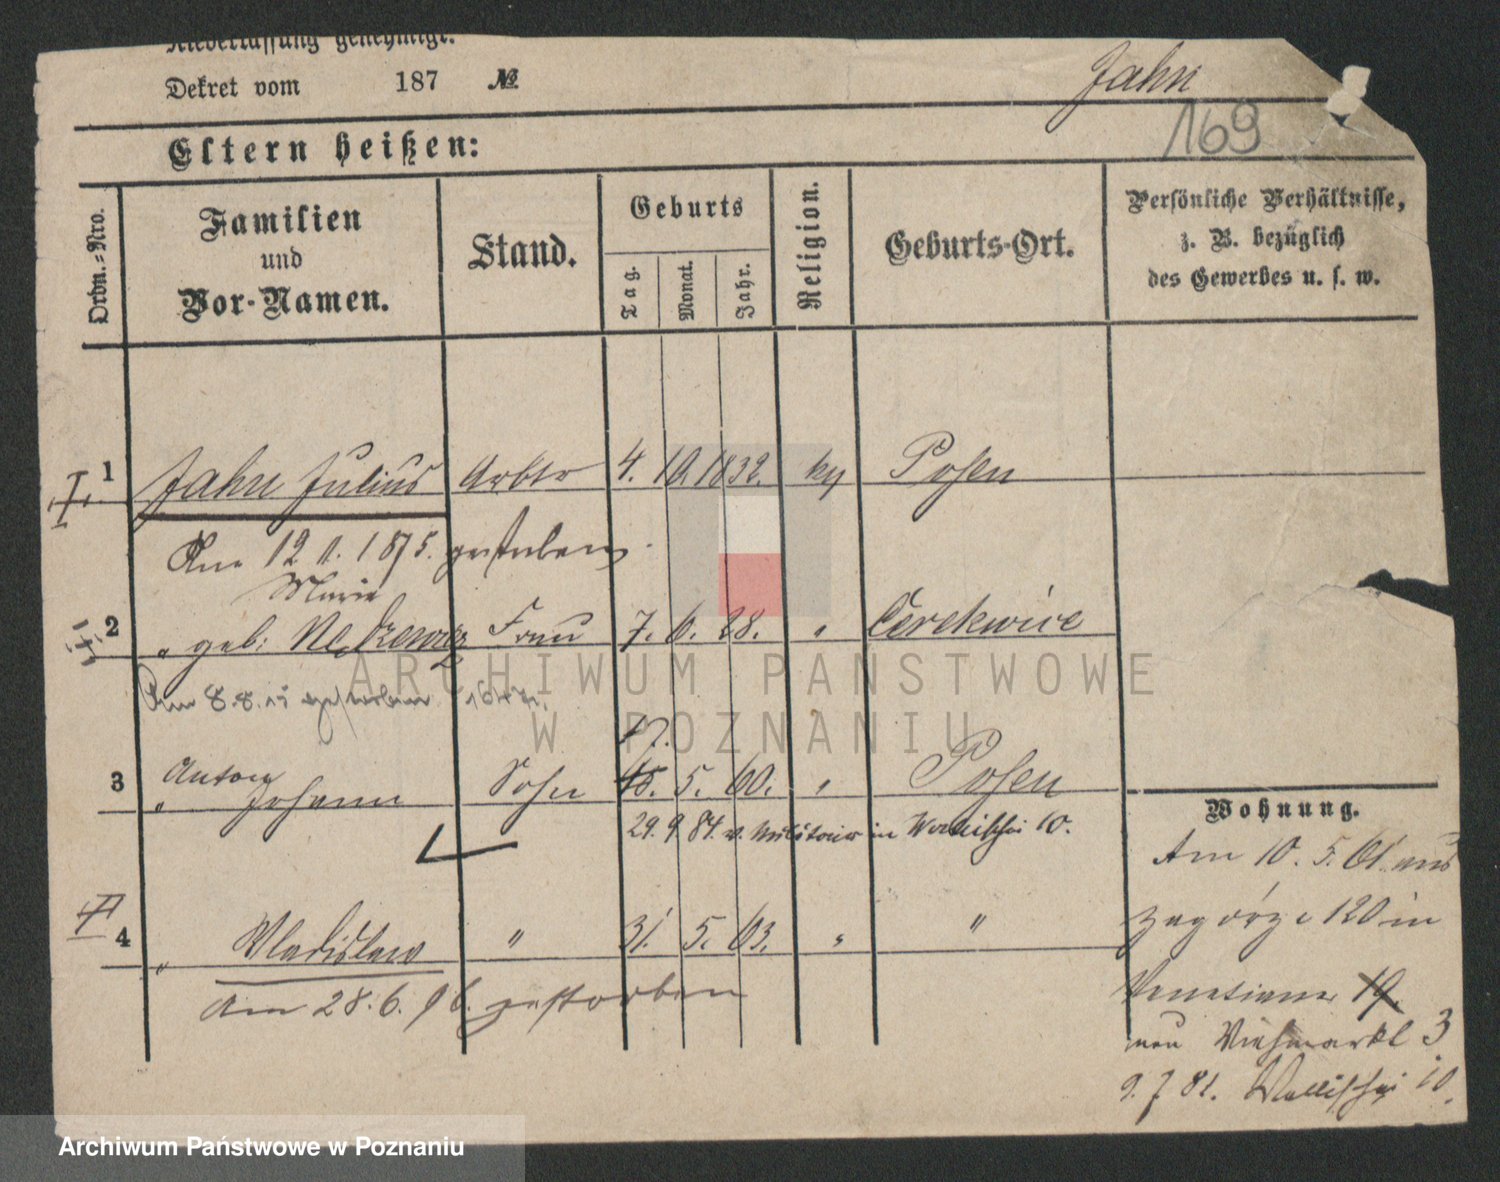 Niederlassung genehmigt.
Dekret vom 187 №
Jahn
169
Eltern heißen:
Ordn.-Nro.
Familien
und
Vor-Namen.
Stand.
Geburts
Tag.
Monat.
Jahr.
Religion.
Geburts-Ort.
Persönliche Verhältnisse,
z. B. bezüglich
des Gewerbes u. s. w.
I. 1 Jahn Julius Arbtr 4. 10. 1832. Posen
Am 12 1. 1875. gestorben
Marie
2 " geb: Frau 7. 6. 28. " Cerekwice
Am 8. 8. gestorben
17.
3 " Anton Johann Sohn 15. 5. 60. " Posen
29. 9. 84. v. Militair in Wallischei 10.
4 " Wladislaw " 31. 5. 63. " "
Am 28. 6. 96. gestorben
Wohnung.
Am 10. 5. 61. aus
Zagórze 120 in
Venetianer 19.
neu Viehmarkt 3
9. 7. 81. Wallischei 10.
ARCHIWUM PAŃSTWOWE
W POZNANIU
Archiwum Państwowe w Poznaniu